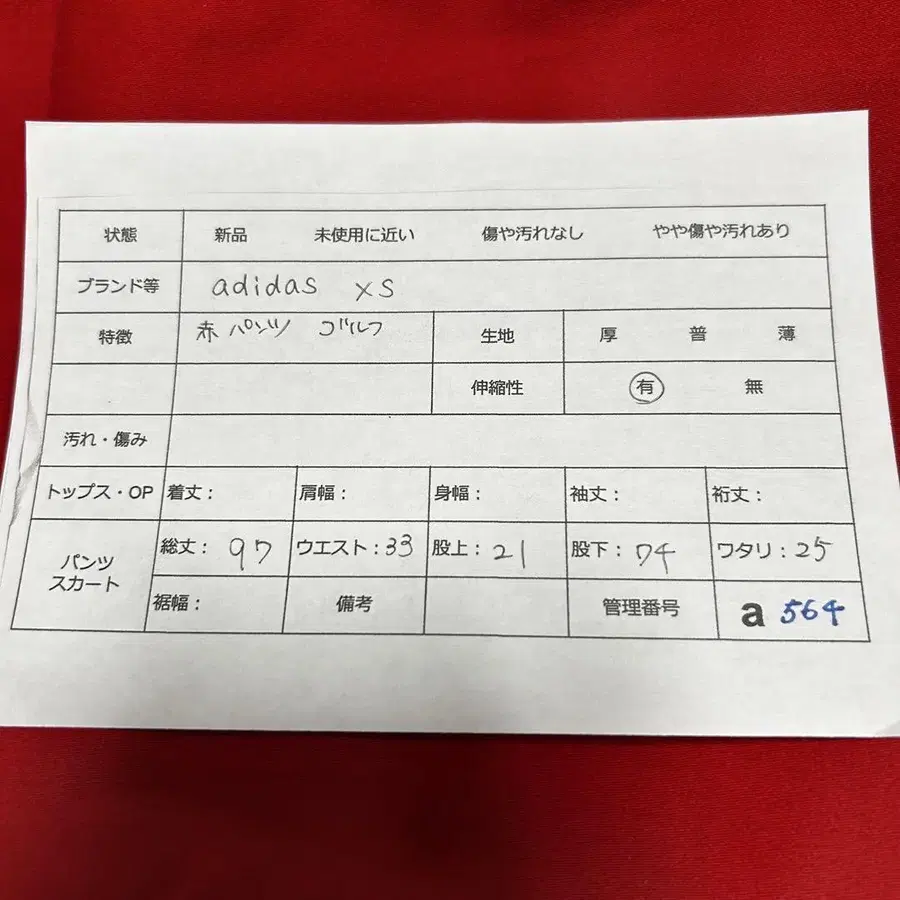 状態 新品 未使用に近い 傷や汚れなし やや傷や汚れあり
ブランド等 adidas XS
特徴 赤 パンツ ゴルフ 生地 厚 普 薄
伸縮性 有 無
汚れ・傷み
トップス・OP 着丈： 肩幅： 身幅： 袖丈： 裄丈：
パンツ スカート 総丈：97 ウエスト：33 股上：21 股下：74 ワタリ：25
裾幅： 備考 管理番号 a 564